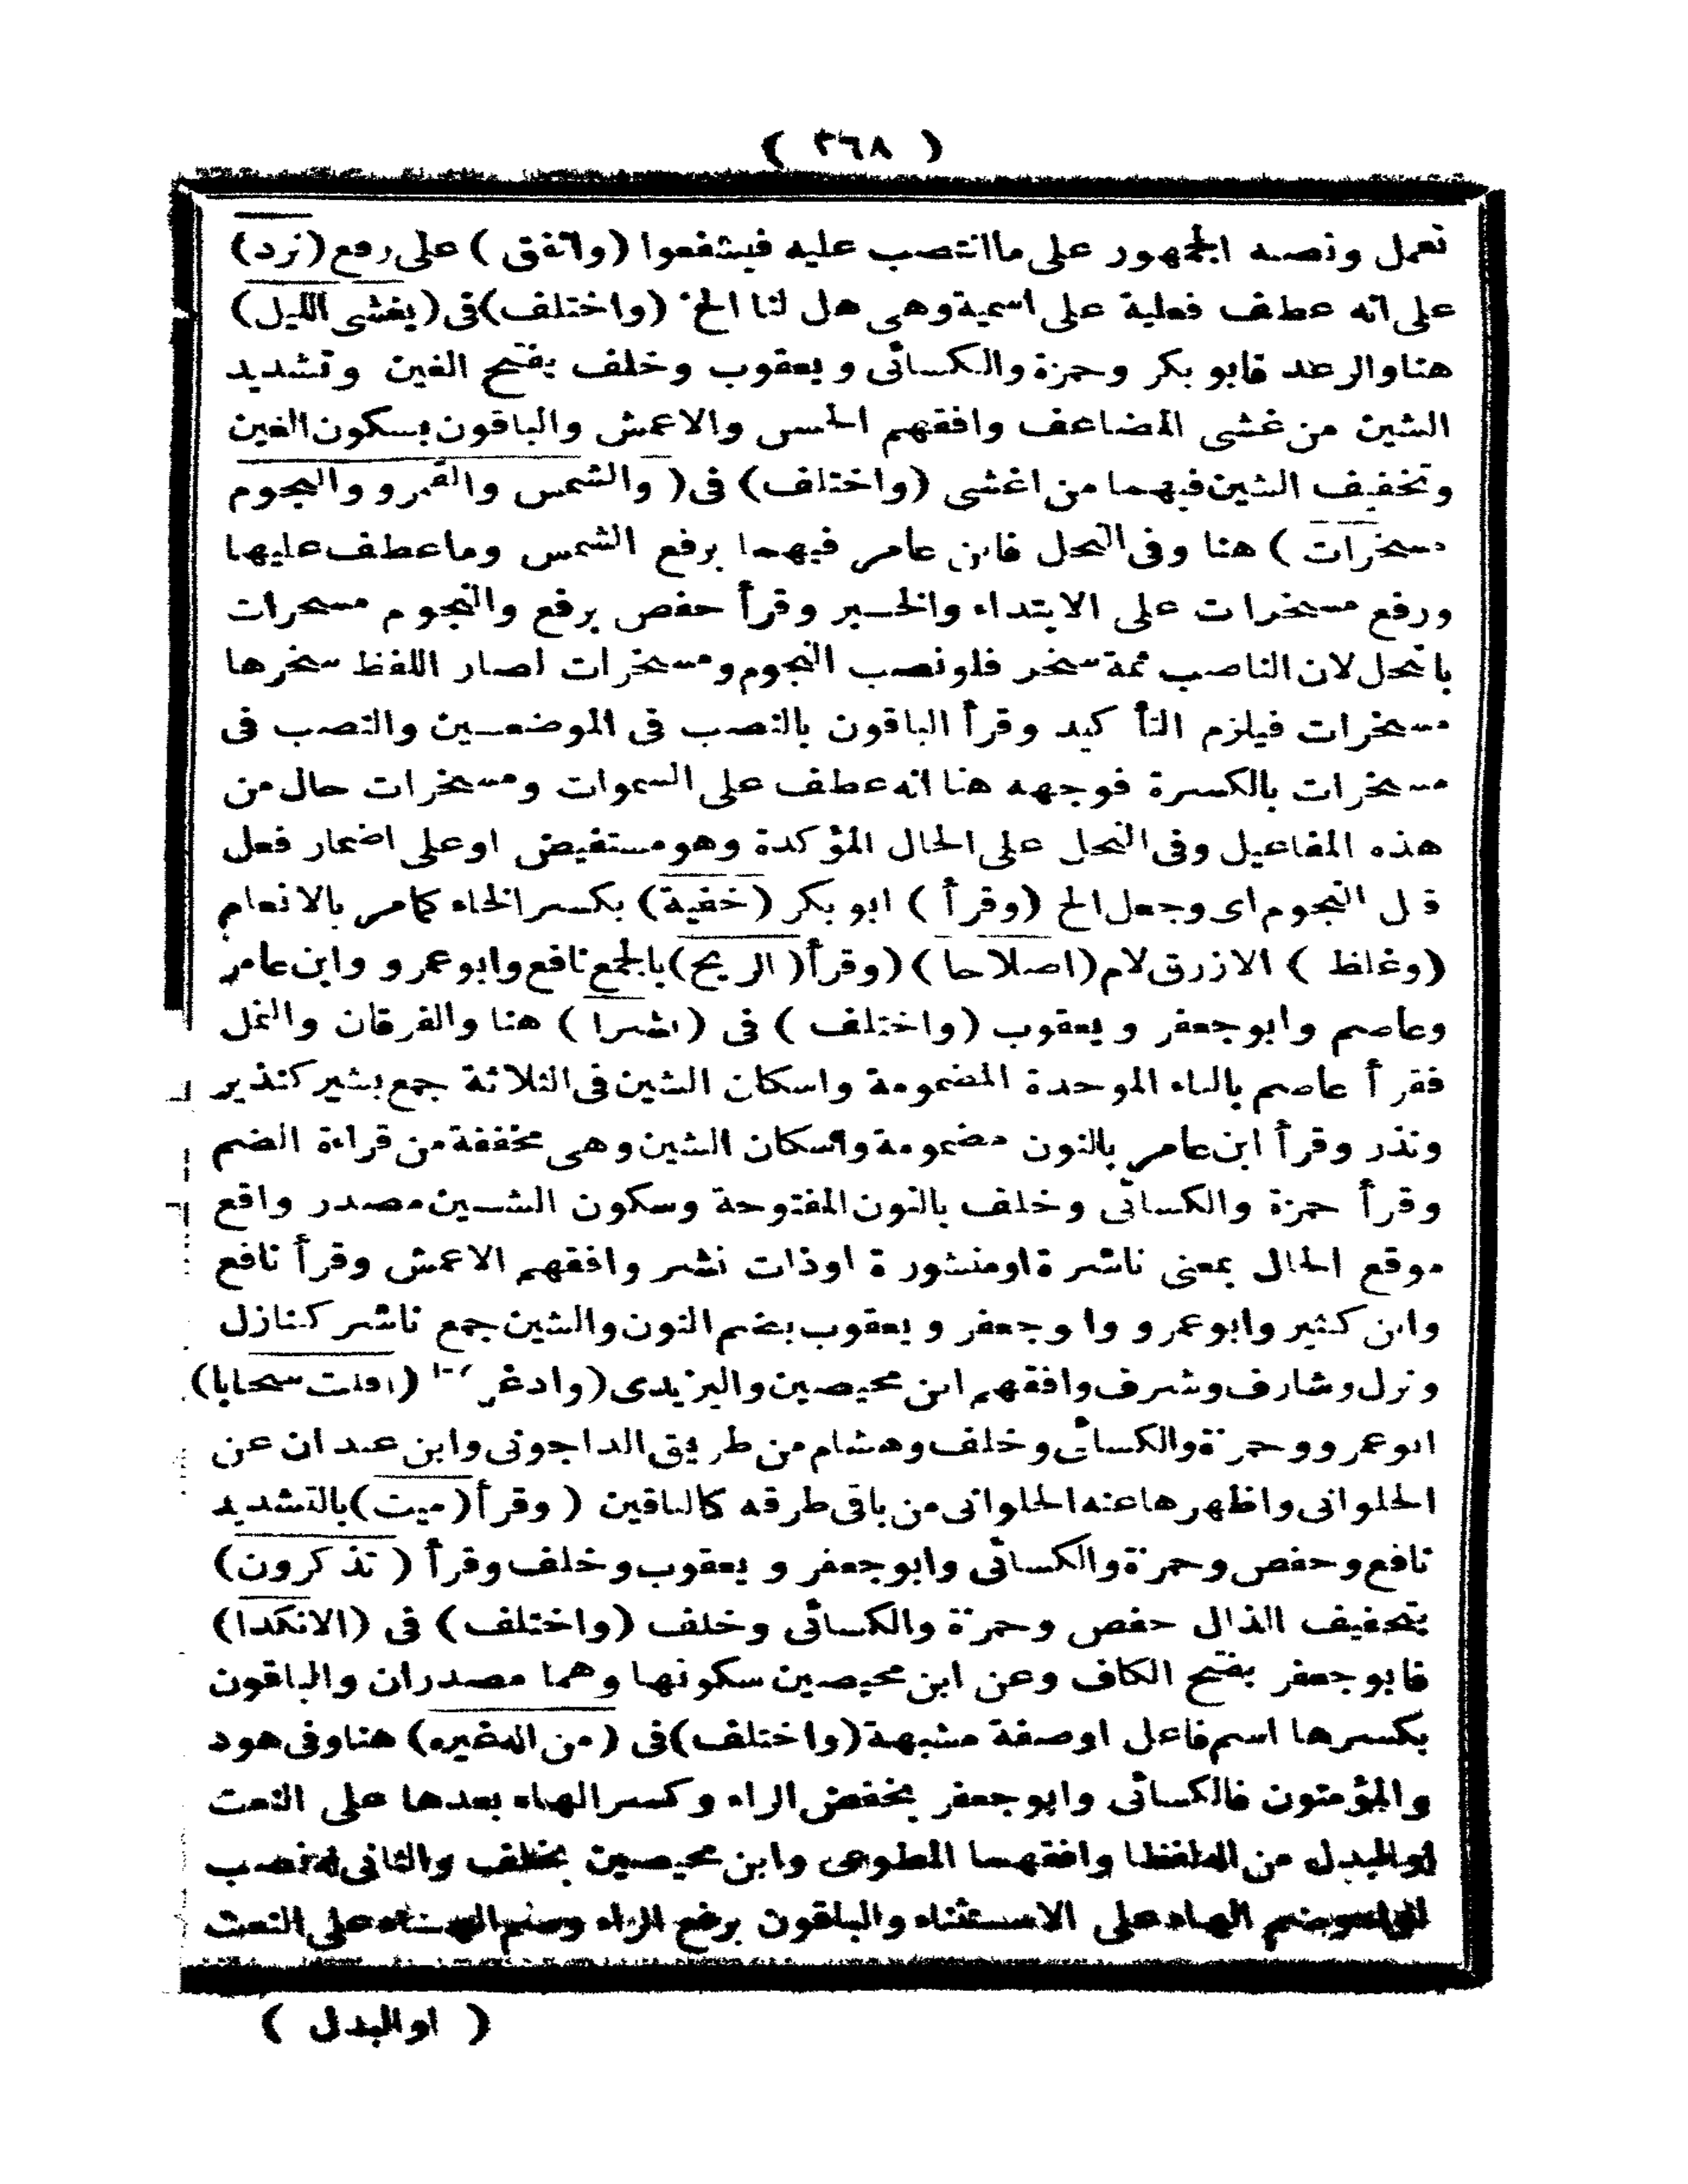 ( ٢٦٨ )
نعمل ونصبه الجمهور على ماانتصب عليه فيشفعوا (واتفق ) على رفع (نرد)
على انه عطف فعلية على اسمية وهى هل لنا الخ (واختلف) فى (يغشى الليل)
هنا والرعد فابو بكر وحمزة والكسائى ويعقوب وخلف بفتح الغين وتشديد
الشين من غشى المضاعف وافقهم الحسن والاعمش والباقون بسكون الغين
وتخفيف الشين فيهما من اغشى (واختلف) فى ( والشمس والقمر و والنجوم
مسخرات ) هنا وفى النحل فابن عامر فيهما برفع الشمس وما عطف عليها
ورفع مسخرات على الابتداء والخبر وقرأ حفص برفع والنجوم مسخرات
بالنحل لان الناصب ثمة سخر فلو نصب النجوم ومسخرات لصار اللفظ سخرها
مسخرات فيلزم التأكيد وقرأ الباقون بالنصب فى الموضعين والنصب فى
مسخرات بالكسرة فوجهه هنا انه عطف على السموات ومسخرات حال من
هذه المفاعيل وفى النحل على الحال المؤكدة وهو مستفيض او على اضمار فعل
قبل النجوم اى وجعل الخ (وقرأ ) ابو بكر (خفية) بكسر الخاء كمامر بالانعام
(وغلظ ) الازرق لام (اصلاحا ) (وقرأ ( الريح) بالجمع نافع وابو عمرو وابن عامر
وعاصم وابو جعفر ويعقوب (واختلف ) فى (نشرا ) هنا والفرقان والنمل
فقرأ عاصم بالباء الموحدة المضمومة واسكان الشين فى الثلاثة جمع بشير كنذير
ونذر وقرأ ابن عامر بالنون مضمومة واسكان الشين وهى مخففة من قراءة الضم
وقرأ حمزة والكسائى وخلف بالنون المفتوحة وسكون الشين مصدر واقع
موقع الحال بمعنى ناشرة او منشورة او ذات نشر وافقهم الاعمش وقرأ نافع
وابن كثير وابو عمرو وابو جعفر ويعقوب بضم النون والشين جمع ناشر كنازل
ونزل وشارف وشرف وافقهم ابن محيصين واليزيدى (وادغم) تا (اقلت سحابا)
ابو عمرو وحمزة والكسائى وخلف وهشام من طريق الداجونى وابن عبدان عن
الحلوانى واظهرها عنه الحلوانى من باقى طرقه كالباقين ( وقرأ (ميت) بالتشديد
نافع وحفص وحمزة والكسائى وابو جعفر ويعقوب وخلف وقرأ ( تذكرون)
بتخفيف الذال حفص وحمزة والكسائى وخلف (واختلف) فى (الانكدا)
فابو جعفر بفتح الكاف وعن ابن محيصين سكونها وهما مصدران والباقون
بكسرها اسم فاعل او صفة مشبهة (واختلف) فى (من اله غيره) هنا وفى هود
والمؤمنون فالكسائى وابو جعفر بخفض الراء وكسر الهاء بعدها على النعت
او البدل من اله لفظا وافقهما المطوعى وابن محيصين بخلف والثانى له نصب
الراء وضم الهاء على الاستثناء والباقون برفع الراء وضم الهاء على النعت
( او البدل )